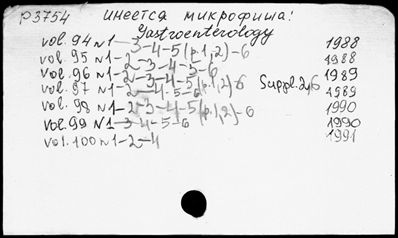 P3754 имеется микрофиша!
Gastroenterology
vol. 94 N1-3-4-5(p.1,2)-6 1988
vol. 95 N1-2-3-4-5-6 1988
vol. 96 N1-2-3-4-5-6 1989
vol. 97 N1-2-4-5-6(p.1,2)6 Suppl. 2,6 1989
vol. 98 N1-2-3-4-5(p.1,2)-6 1990
vol. 99 N1-3-4-5-6 1990
vol. 100 N1-2-4 1991